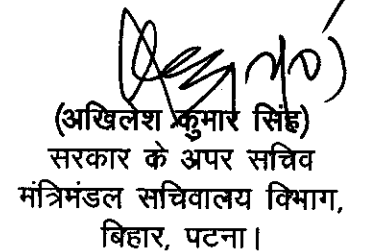 (अखिलेश कुमार सिंह)
सरकार के अपर सचिव
मंत्रिमंडल सचिवालय विभाग,
बिहार, पटना।